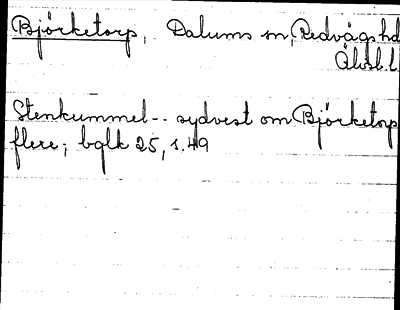 Björketorp, Dalums sn, Redvägs hd
Älvsb. l.
Stenkummel -- sydvest om Björketorp
flere; bglk 25, s. 49